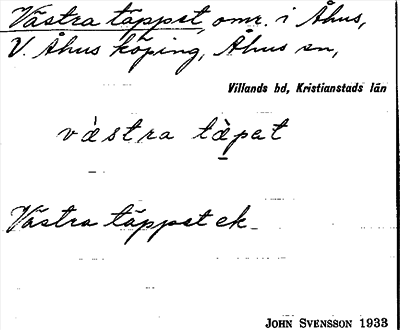 Västra täppet, omr. i Åhus,
V. Åhus köping, Åhus sn,
Villands hd, Kristianstads län
västra tàpet
Västra täppet ek.
John Svensson 1933